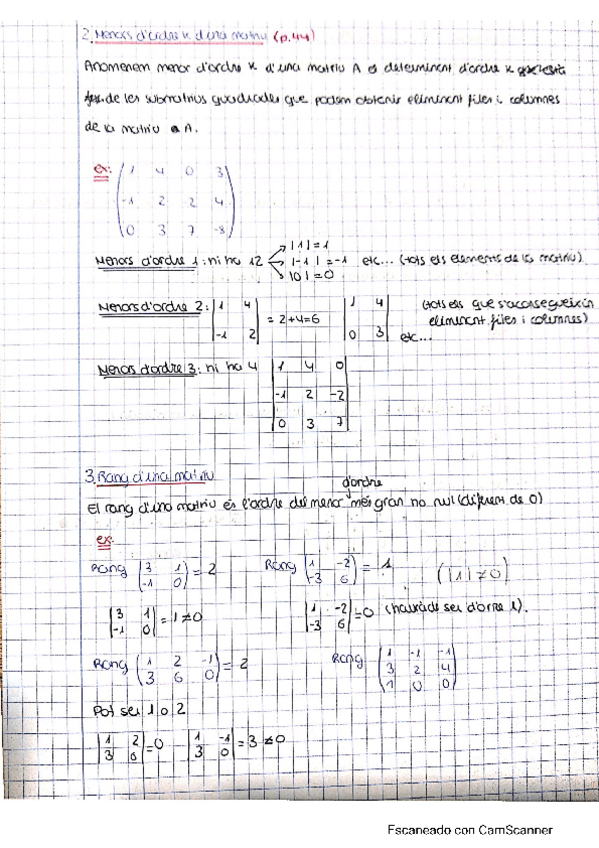 2. Menors d'ordre k d'una matriu (p.44)
Anomenem menor d'ordre k d'una matriu A el determinant d'ordre k
de les submatrius quadrades que podem obtenir eliminant files i columnes
de la matriu A.
ex:
1 4 0 3
-1 2 2 4
0 3 7 -8
Menors d'ordre 1: ni ha 12 |1|=1 |-1|=-1 |0|=0 etc... (tots els elements de la matriu)
Menors d'ordre 2: |1 4| |1 4| (tots els que s'aconsegueixin
|-1 2| = 2+4=6 |0 3| etc... eliminant files i columnes)
Menors d'ordre 3: ni ha 4 |1 4 0|
|-1 2 -2|
|0 3 7|
3. Rang d'una matriu
d'ordre
El rang d'una matriu és l'ordre del menor més gran no nul (diferent de 0)
ex:
Rang (3 1) = 2 Rang (1 -2) = 1 (|1|≠0)
(-1 0) (-3 6)
|3 1| = 1≠0 |1 -2| = 0 (haurà de ser d'orre 1).
|-1 0| |-3 6|
Rang (1 2 -1) = 2 Rang (1 -1 -1)
(3 6 0) (3 2 4)
(1 0 0)
Pot ser 1 o 2
|1 2| = 0 |1 -1| = 3≠0
|3 6| |3 0|
Escaneado con CamScanner